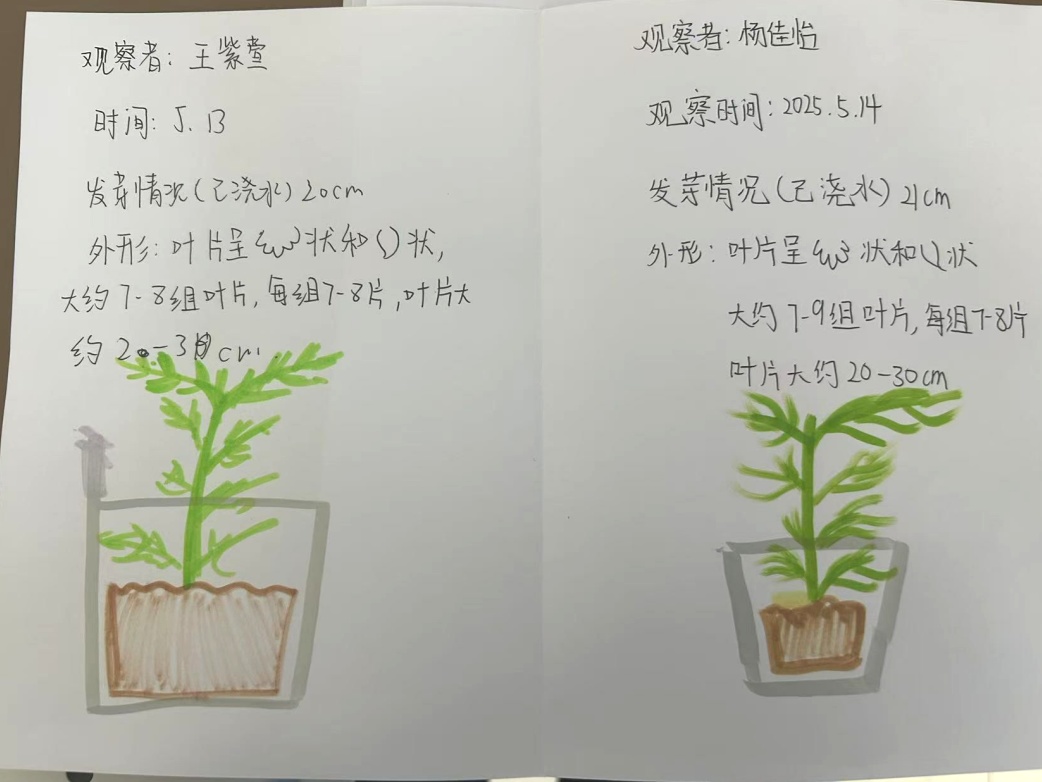 观察者：王紫萱
时间：5.13
发芽情况（已浇水）20cm
外形：叶片呈状和()状，
大约7-8组叶片，每组7-8片，叶片大
约20-30cm.
观察者：杨佳怡
观察时间：2025.5.14
发芽情况（已浇水）21cm
外形：叶片呈状和()状
大约7-9组叶片，每组7-8片
叶片大约20-30cm